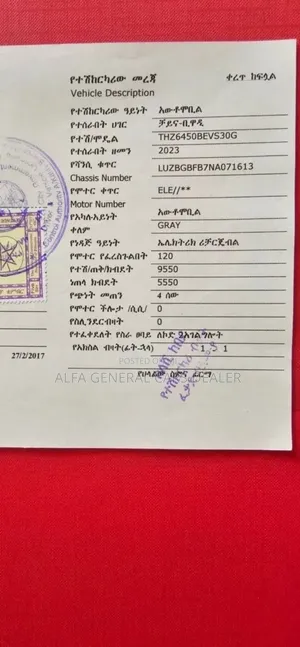 የተሽከርካሪው መረጃ
ቀረጥ ከፍሏል
Vehicle Description
የተሽከርካሪው ዓይነት አውቶሞቢል
የተሰራበት ሀገር ቻይና-ቢዋዲ
የተሽ/ሞዴል THZ6450BEVS30G
የተሰራበት ዘመን 2023
የሻንሲ ቁጥር LUZBGBFB7NA071613
Chassis Number
የሞተር ቀጥር ELE//**
Motor Number
የአካሉአይነት አውቶሞቢል
ቀለም GRAY
የነዳጅ ዓይነት ኤሌክትሪክ ሪቻርጀብል
የሞተር የፈረስጉልበት 120
የተሽ/ጠቅ/ክብደት 9550
ነጠላ ክብደት 5550
የጭነት መጠን 4 ሰው
የሞተር ችሎታ /ሲሲ/ 0
የሲሊንደርብዛት 0
የተፈቀደለት የስራ ፀባይ ለኮድ
የአክሰል ብዛት(ፊት-ኋላ) 1 1
POSTED
ALFA GENERAL CARS DEALER
27/2/2017
የሀላፊው ስምና ፊርማ